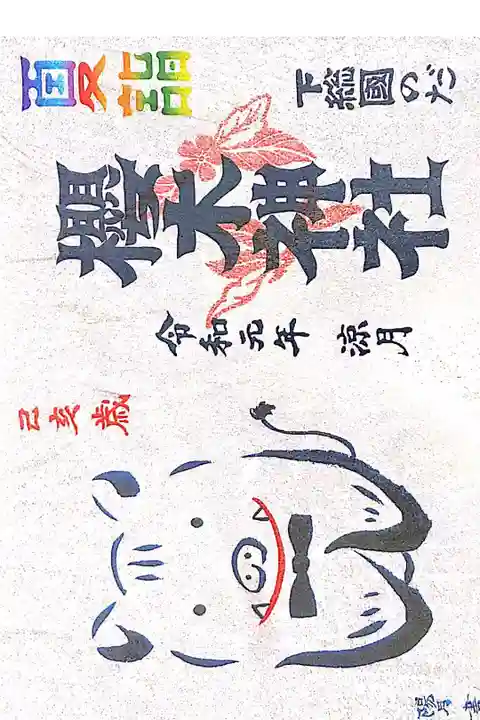 夏詣
下総國のだ
櫻木神社
令和元年 涼月
己亥歳